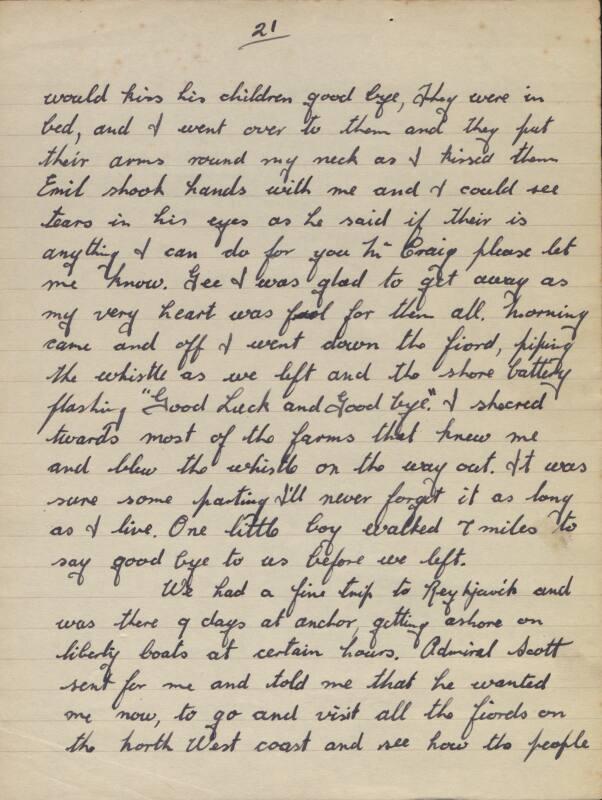 21
would kiss his children good bye, They were in
bed, and I went over to them and they put
their arms round my neck as I kissed them
Emil shook hands with me and I could see
tears in his eyes as he said if their is
anything I can do for you Mr Craig please let
me know. Gee I was glad to get away as
my very heart was for them all. Morning
came and off I went down the fiord, piping
the whistle as we left and the shore battery
flashing "Good Luck and Good bye". I sheered
twards most of the farms that knew me
and blew the whistle on the way out. It was
sure some parting I'll never forget it as long
as I live. One little boy walked 7 miles to
say good bye to us before we left.
We had a fine trip to Reykjavik and
was there 9 days at anchor, getting ashore on
liberty boats at certain hours. Admiral Scott
sent for me and told me that he wanted
me now, to go and visit all the fiords on
the North West coast and see how the people